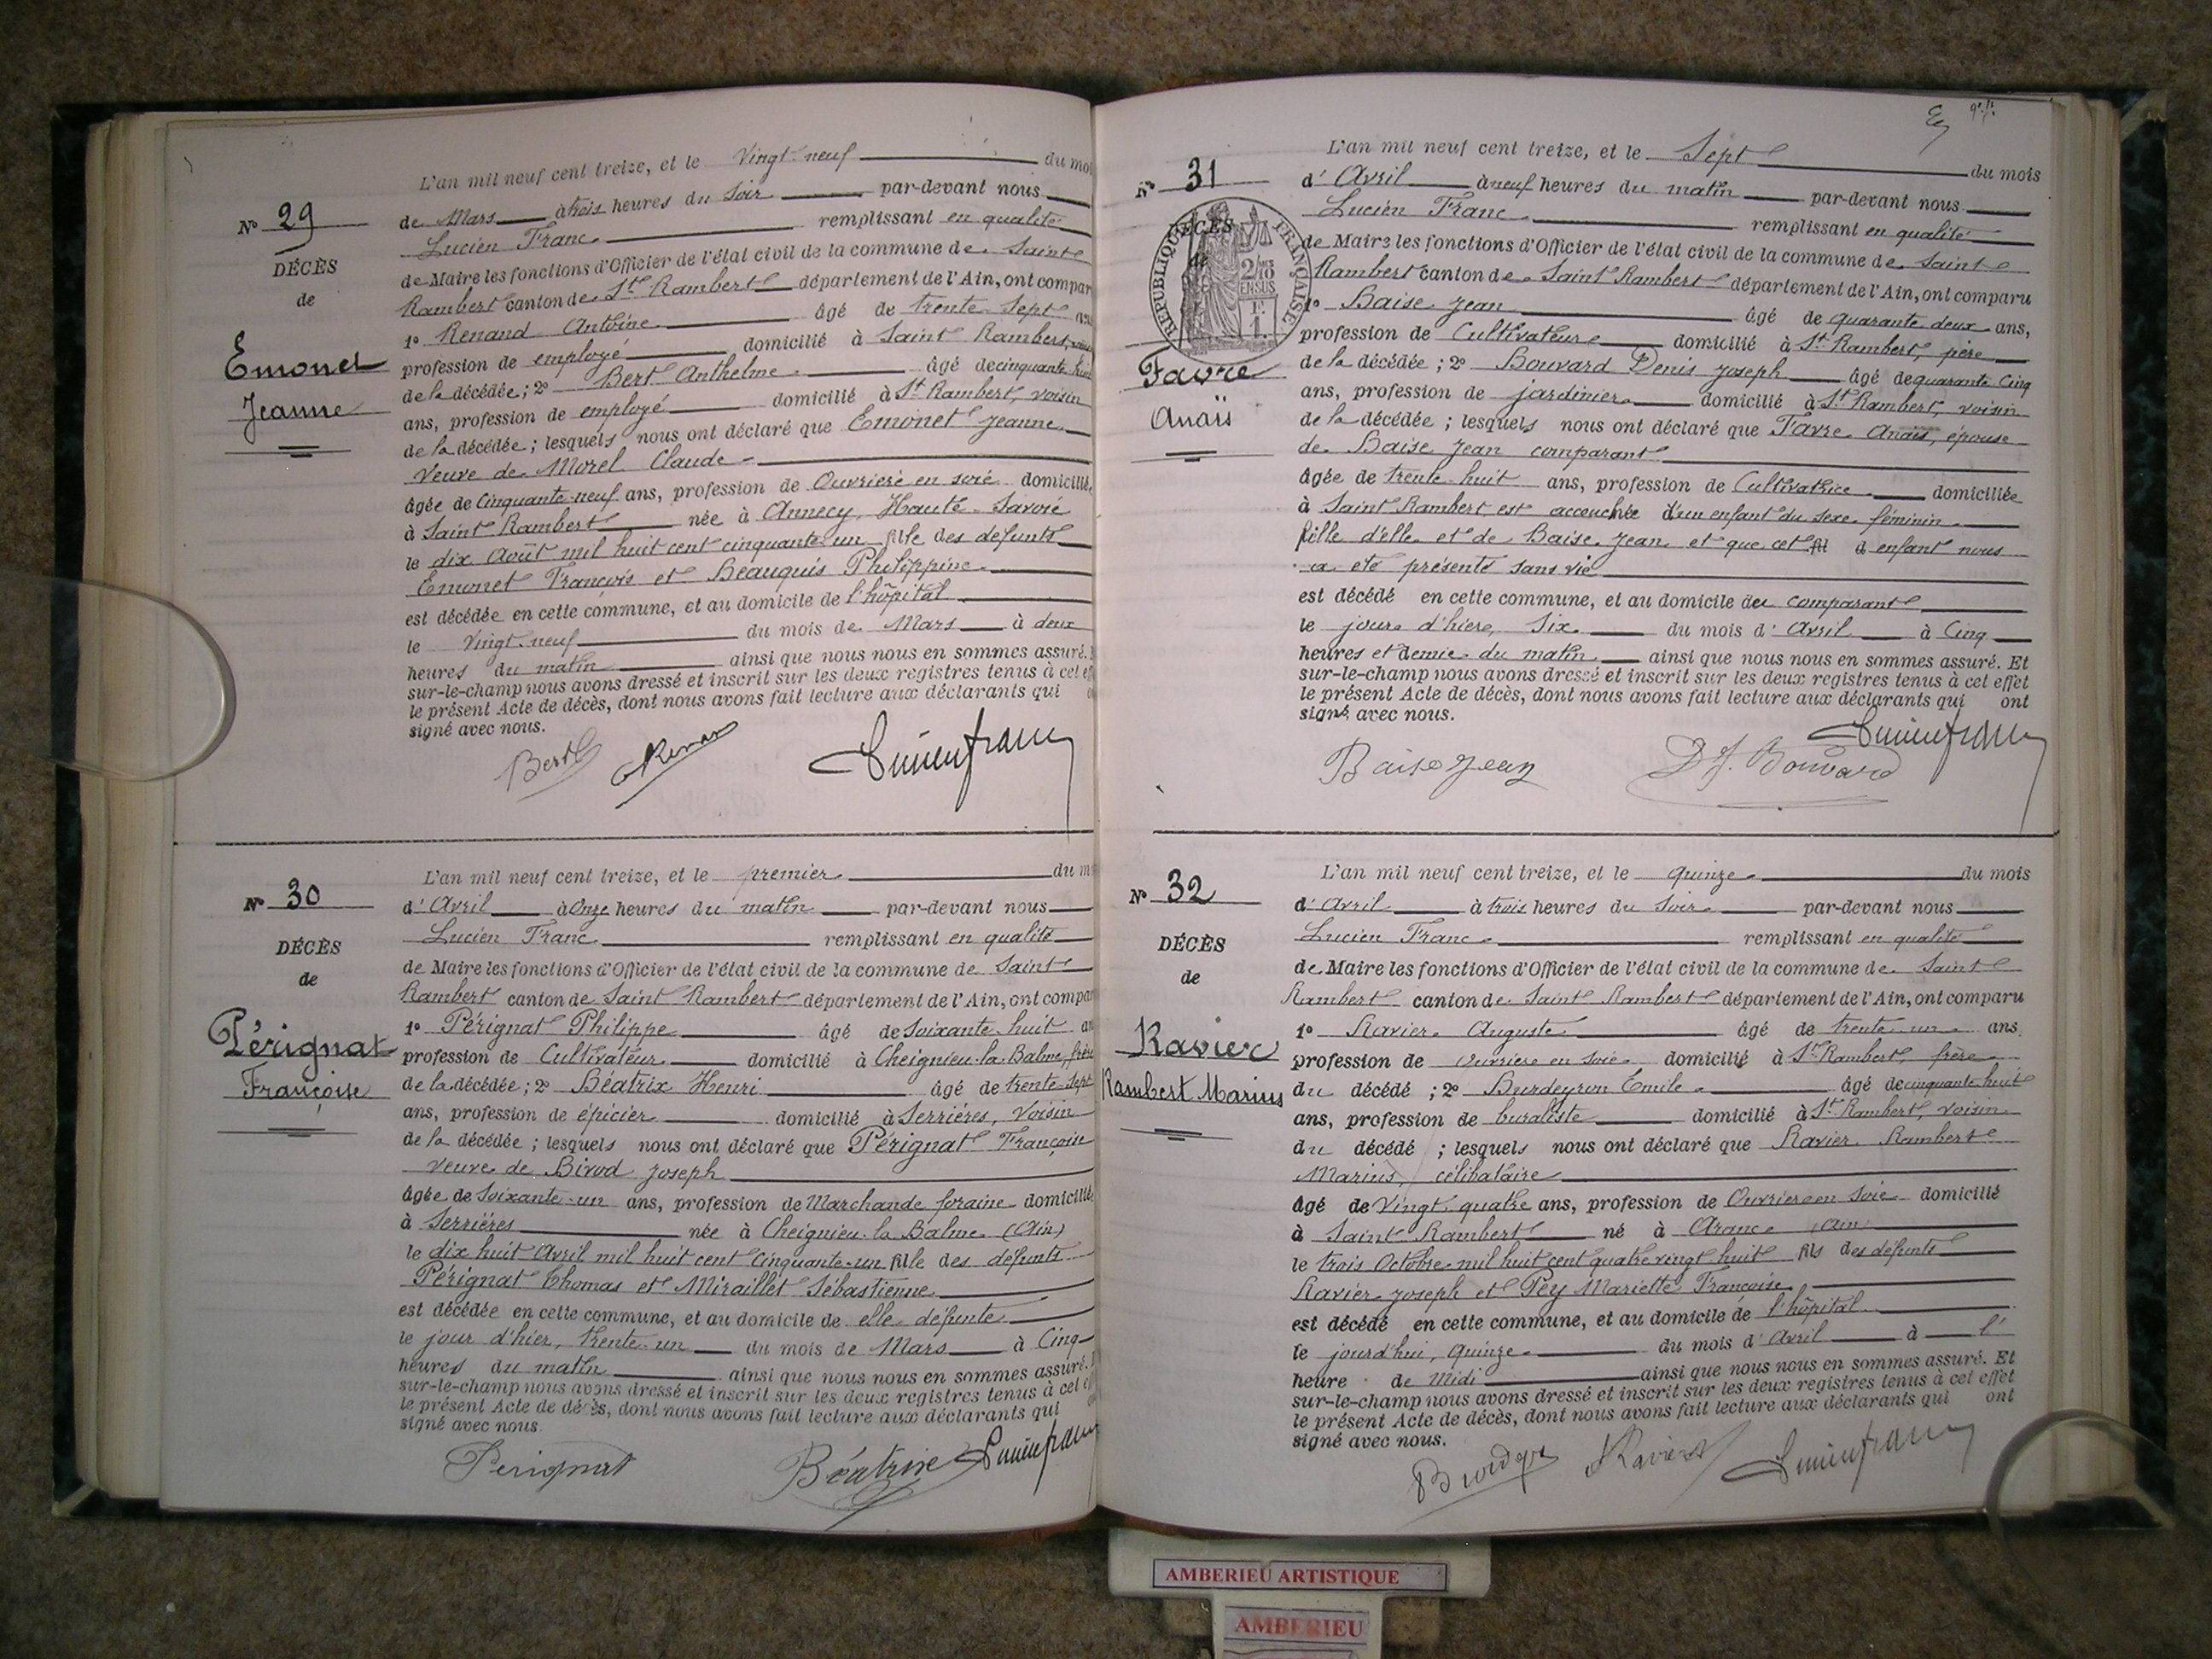 L'an mil neuf cent treize, et le Vingt-neuf du moi
N° 29
DÉCÈS
de
Emonet
Jeanne
de Mars à trois heures du Soir par-devant nous
Lucien Franc remplissant en qualité
de Maire les fonctions d'Officier de l'état civil de la commune de Saint
Rambert canton de St Rambert département de l'Ain, ont compar
1° Renand Antoine âgé de trente sept an
profession de employé domicilié à Saint Rambert,
de la décédée; 2° Bert Anthelme âgé de cinquante huit
ans, profession de employé domicilié à St Rambert, voisin
de la décédée; lesquels nous ont déclaré que Emonet Jeanne
Veuve de Morel Claude
âgée de Cinquante-neuf ans, profession de Ouvrière en soie domiciliée
à Saint Rambert née à Annecy, Haute-Savoie
le dix Août mil huit cent cinquante un fille des défunts
Emonet François et Beauquis Philippine
est décédée en cette commune, et au domicile de l'hôpital
le Vingt-neuf du mois de Mars à deux
heures du matin ainsi que nous nous en sommes assuré.
sur-le-champ nous avons dressé et inscrit sur les deux registres tenus à cet ef
le présent Acte de décès, dont nous avons fait lecture aux déclarants qui
signé avec nous.
Bert Lucien franc
N° 30
DÉCÈS
de
Pérignat
Françoise
L'an mil neuf cent treize, et le premier du m
d'Avril à Onze heures du matin par-devant nous
Lucien Franc remplissant en qualité
de Maire les fonctions d'Officier de l'état civil de la commune de Saint
Rambert canton de Saint Rambert département de l'Ain, ont compar
1° Pérignat Philippe âgé de Soixante-huit an
profession de Cultivateur domicilié à Cheignieu-la-Balme, frère
de la décédée; 2° Béatrix Henri âgé de trente-sept
ans, profession de épicier domicilié à Serrières, Voisin
de la décédée; lesquels nous ont déclaré que Pérignat Françoise
veuve de Birod Joseph
âgée de Soixante-un ans, profession de Marchande foraine domiciliée
à Serrières née à Cheignieu-la-Balme (Ain)
le dix huit Avril mil huit cent Cinquante-un fille des défunts
Pérignat Thomas et Miraillet Sébastienne
est décédée en cette commune, et au domicile de elle défunte
le jour d'hier, trente-un du mois de Mars à Cinq
heures du matin ainsi que nous nous en sommes assuré.
sur-le-champ nous avons dressé et inscrit sur les deux registres tenus à cet ef
le présent Acte de décès, dont nous avons fait lecture aux déclarants qui
signé avec nous.
Perignat Béatrix Lucien franc
L'an mil neuf cent treize, et le Sept du mois
N° 31
DÉCÈS
de
RÉPUBLIQUE FRANÇAISE
2/10 EN SUS
Favre
Anaïs
d'Avril à neuf heures du matin par-devant nous
Lucien Franc remplissant en qualité
de Maire les fonctions d'Officier de l'état civil de la commune de Saint
Rambert canton de Saint Rambert département de l'Ain, ont comparu
1° Baise Jean âgé de quarante deux ans,
profession de Cultivateur domicilié à St Rambert, père
de la décédée; 2° Bouvard Denis Joseph âgé de quarante Cinq
ans, profession de jardinier domicilié à St Rambert, voisin
de la décédée; lesquels nous ont déclaré que Favre Anaïs, épouse
de Baise Jean comparant
âgée de trente-huit ans, profession de Cultivatrice domiciliée
à Saint Rambert est accouchée d'un enfant du sexe féminin
fille d'elle et de Baise Jean et que cet enfant nous
a été présenté sans vie
est décédé en cette commune, et au domicile du comparant
le jour d'hier, Six du mois d'Avril à Cinq
heures et demie du matin ainsi que nous nous en sommes assuré. Et
sur-le-champ nous avons dressé et inscrit sur les deux registres tenus à cet effet
le présent Acte de décès, dont nous avons fait lecture aux déclarants qui ont
signé avec nous.
Baise Jean D J. Bouvard Lucien franc
N° 32
DÉCÈS
de
Ravier
Rambert Marius
L'an mil neuf cent treize, et le quinze du mois
d'Avril à trois heures du Soir par-devant nous
Lucien Franc remplissant en qualité
de Maire les fonctions d'Officier de l'état civil de la commune de Saint
Rambert canton de Saint Rambert département de l'Ain, ont comparu
1° Ravier Auguste âgé de trente-un ans
profession de ouvrier en soie domicilié à St Rambert, frère
du décédé; 2° Burdeyron Emile âgé de cinquante huit
ans, profession de buraliste domicilié à St Rambert, voisin
du décédé; lesquels nous ont déclaré que Ravier Rambert
Marius, célibataire
âgé de Vingt-quatre ans, profession de Ouvrier en soie domicilié
à Saint Rambert né à Aranc Ain
le trois Octobre mil huit cent quatre vingt huit fils des défunts
Ravier Joseph et Pey Mariette Françoise
est décédé en cette commune, et au domicile de l'hôpital
le jourd'hui, quinze du mois d'Avril à l'
heure de Midi ainsi que nous nous en sommes assuré. Et
sur-le-champ nous avons dressé et inscrit sur les deux registres tenus à cet effet
le présent Acte de décès, dont nous avons fait lecture aux déclarants qui ont
signé avec nous.
Ravier Lucien franc
AMBERIEU ARTISTIQUE
AMBERIEU